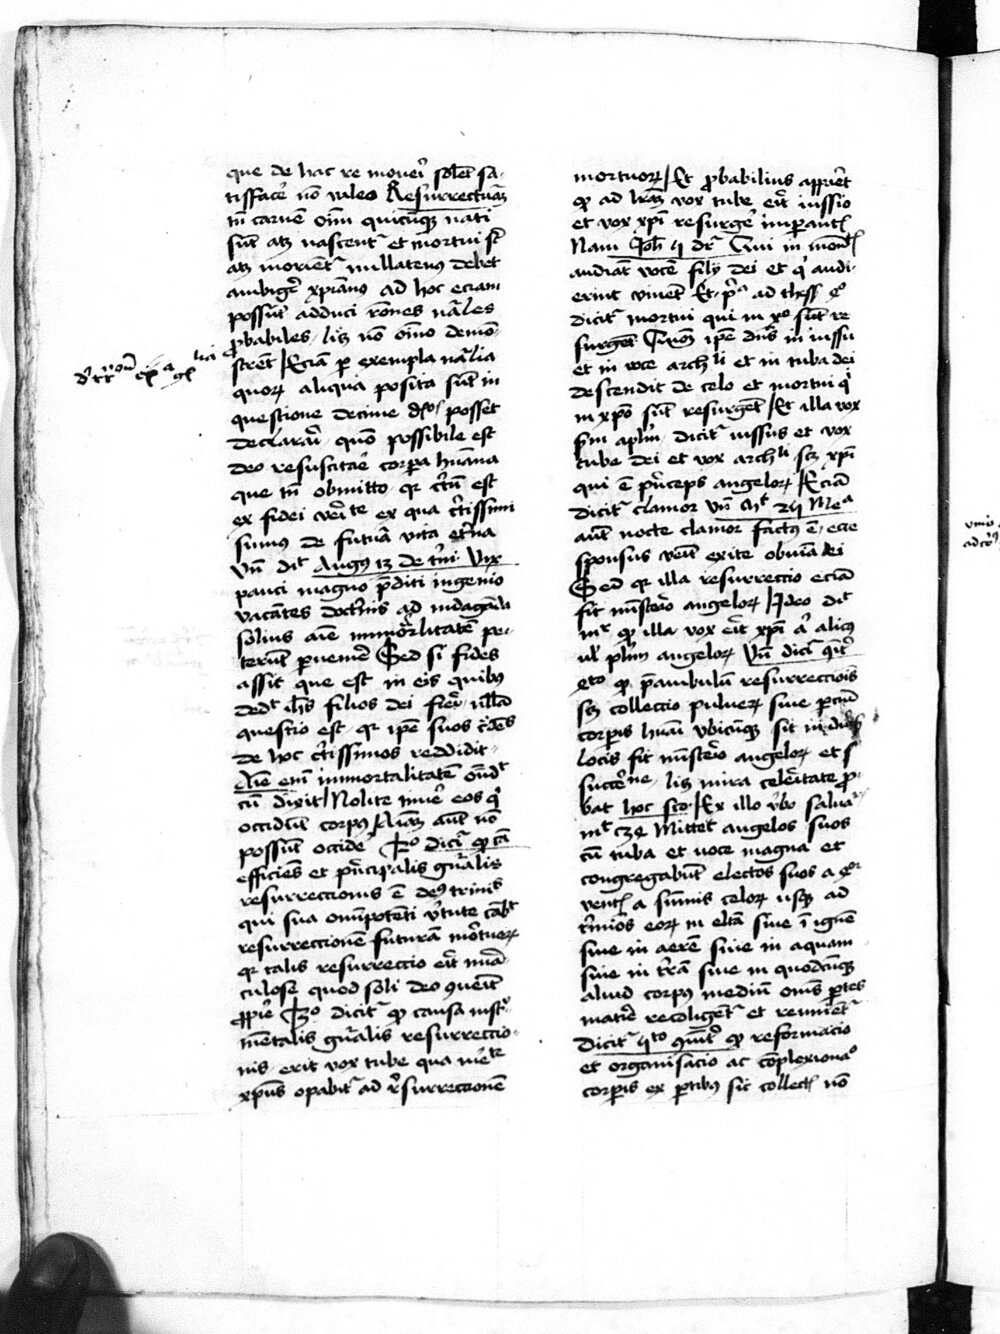 que de hac re moueri solet sa-
tisfacere nõ valeo Resurrecturã
tñ carnẽ oĩm quicũqz nati
sũt atqz nascent̃ et mortui st̃
atqz morient̃ nullatenꝰ debet
ambige᷑ xpianꝰ ad hoc eciam
possũt adduci rõnes nãles
ꝓbabiles / licz nõ oĩno demõ-
strẽt / Eciã ꝑ exempla nãlia
quoꝝ aliqua posita sũt in
questione decime posset
declarari quõ possibile est
deo resuscitare corpora hũana
que tñ obmitto qꝛ certũ est
ex fidei veritate ex qua certissimi
sumus de futura vita eterna
Vñ dicit Augꝰ 13 de tri. Vix
pauci magno p̃diti ingenio
vacãtes doctrinis ad indagandã
solius aĩe immortalitatẽ po-
terũt ꝑuenire Sed si fides
assit que est in eis quibꝰ
dedit filios dei fieri nulla
questio est qꝛ ipe suos
de hoc certissimos reddidit
Aĩe eĩ immortalitatẽ oñdit
cũ dixit / Nolite timere eos qui
occidũt corpꝰ / Aĩam aut nõ
possũt occidere dicit̃ ꝙ cã
efficiẽs et pñcipalis gñalis
resurrectionis ẽ deꝰ trinꝰ
qui sua omĩpotẽti virtute
resurrectionẽ futurã mortuoꝝ
qꝛ talis resurrectio erit mira
culose quod soli deo ꝯuenit
ꝓprie dicit̃ ꝙ causa instru
mentalis gñalis resurrectio-
nis erit vox tube qua
xpus opabit̃ ad resurrectionẽ
mortuoꝝ / Et ꝓbabilius apparet
ꝙ ad lrã vox tube erit iussio
et vox xpi resurgere imperantis
Nam Joh 5 dr̃ Qui in monumentis
audiãt vocẽ filij dei et qui audi-
erint viuent Et p̃ᵃ ad thess 4º
dicit̃ mortui qui in xº sũt re
surgent Qm̃ ipe dñs in iussu
et in voce archli et in tuba dei
descendit de celo et mortui qui
in xpo sũt resurgent / Et illa vox
scdm aplm̃ dicit̃ iussus et vox
tube dei et vox archli scz xpi
qui ẽ p̃nceps angeloꝝ / Eciã
dicit̃ clamor Vñ Mt 25 Media
autẽ nocte clamor factꝰ ẽ ecce
sponsus venit exite obuiã ei
Sed qꝛ illa resurrectio eciã
fit ministerio angeloꝝ Ideo dicit
mr̃ ꝙ illa vox erit xpi aut alicꝰ
uel plim̃ angeloꝝ Vñ dicit̃
4to ꝙ p̃ambulũ resurrectiois
scz collectio pulueꝝ siue partiũ
corpis humani vbicũqz sit in diuersis
locis fit ministerio angeloꝝ et
licz mira celeritate pro-
bat hoc sco / Ex illo verbo saluato-
mt 24 Mittet angelos suos
cũ tuba et voce magna et
congregabũt electos suos a 4or
ventis a sũmis celoꝝ usqz ad
terminos eoꝝ siue ĩ ignẽ
siue in aerẽ siue in aquam
siue in terrã siue in quodcũqz
aliud corpꝰ mediũ oẽs partes
materie recolliget̃ et reuniet̃
Dicit̃ 5to ꝙ reformacio
et organisacio ac cõplexionaº
corpis ex partibꝰ sic collectis nõ